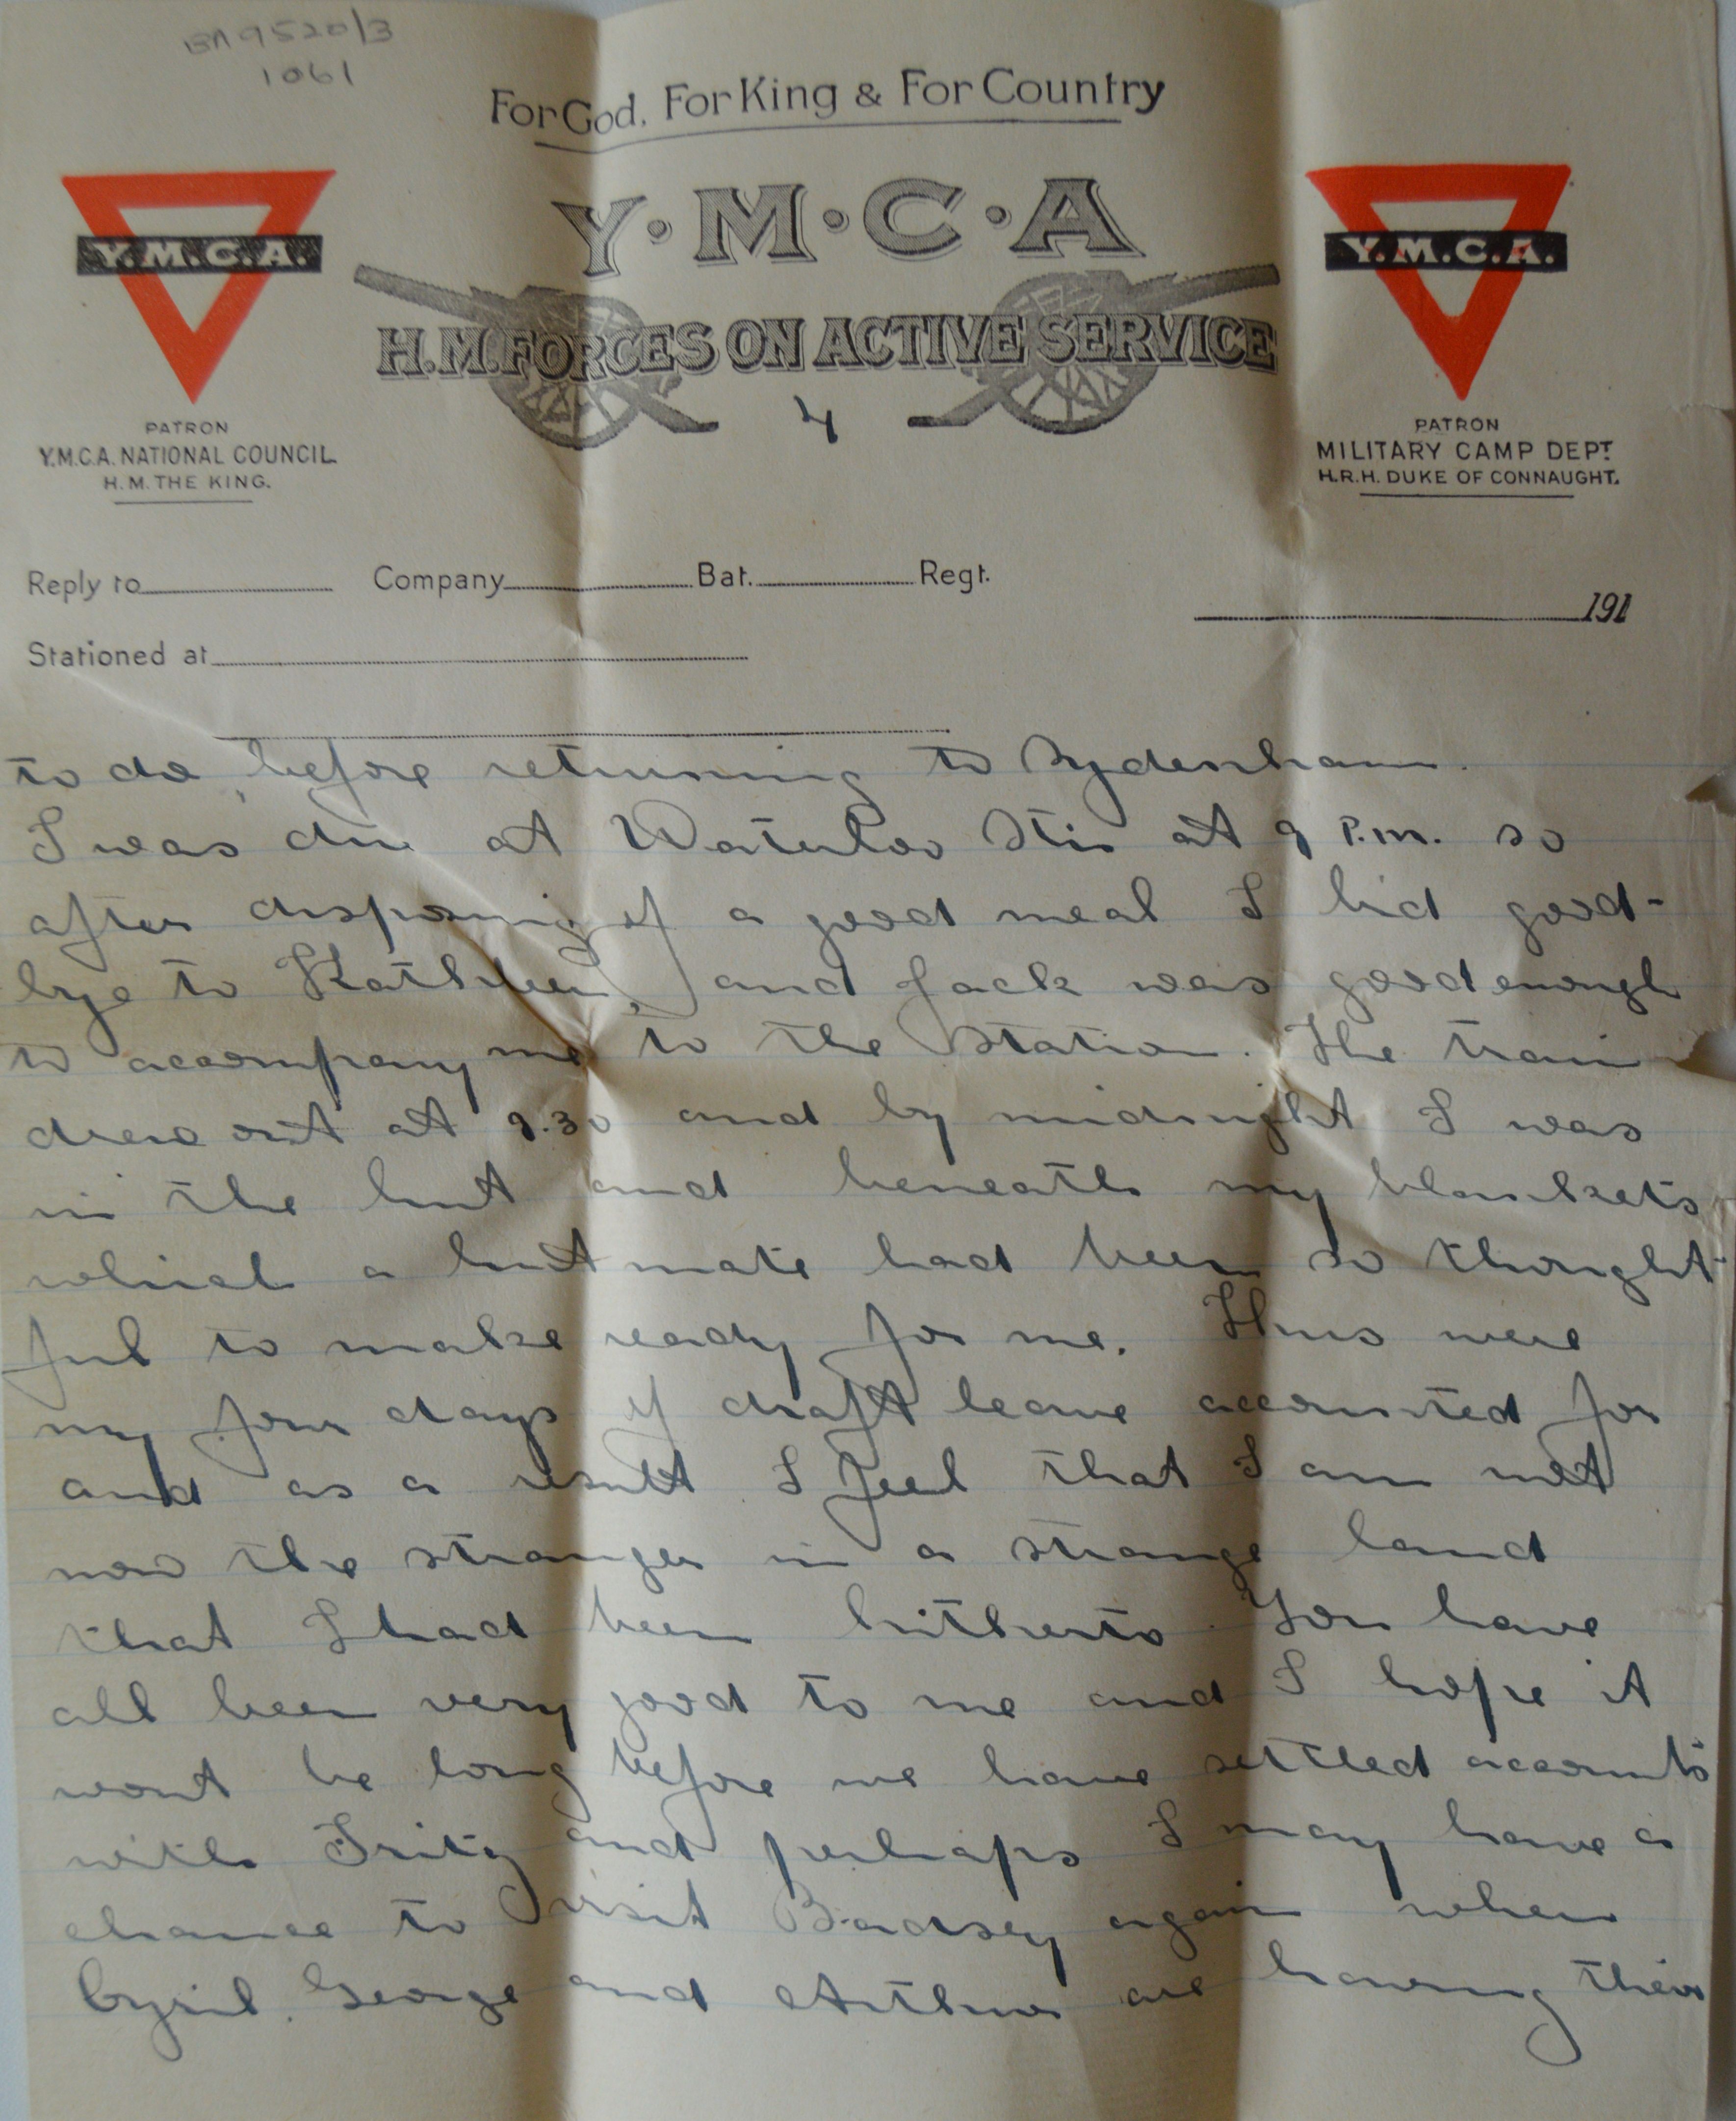 BA 9520/3
1061
For God, For King & For Country
Y·M·C·A
H.M. FORCES ON ACTIVE SERVICE
Y.M.C.A.
Y.M.C.A.
4
PATRON
Y.M.C.A. NATIONAL COUNCIL
H.M. THE KING.
PATRON
MILITARY CAMP DEPT.
H.R.H. DUKE OF CONNAUGHT.
Reply to Company Bat. Regt.
191
Stationed at
to do before returning to Sydenham.
I was due at Waterloo Stn at 9 P.M. so
after disposing of a good meal I bid good-
bye to Kathleen, and Jack was good enough
to accompany me to the station. The train
drew out at 9.30 and by midnight I was
in the hut and beneath my blankets
which a hut mate had been so thought-
ful to make ready for me. Thus were
my four days of draft leave accounted for
and as a result I feel that I am not
now the stranger in a strange land
that I had been hitherto. You have
all been very good to me and I hope it
wont be long before we have settled accounts
with Fritz and perhaps I may have a
chance to visit Badsey again when
Cyril, George and Arthur are having their